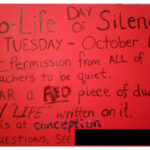 o-Life DAY OF Silenc
TUESDAY - October
Permission from ALL of
achers to be quiet.
AR a RED piece of duc
LIFE written on it.
is at conception
UESTIONS, SEE